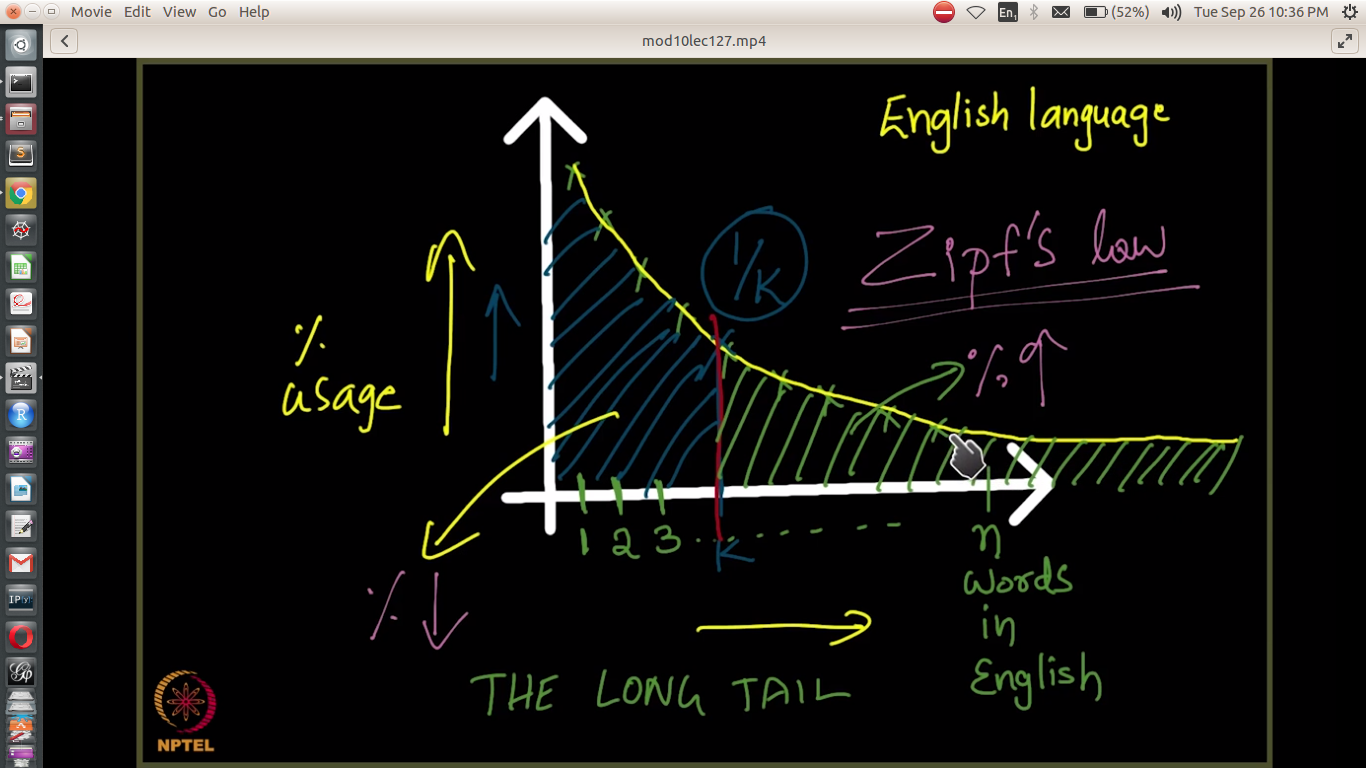 Movie Edit View Go Help
En1 (52%) Tue Sep 26 10:36 PM
mod10lec127.mp4
English language
Zipf's law
1/K
% usage
%
%
1 2 3 ........ K n
words
in
English
THE LONG TAIL
NPTEL
IP[y]: